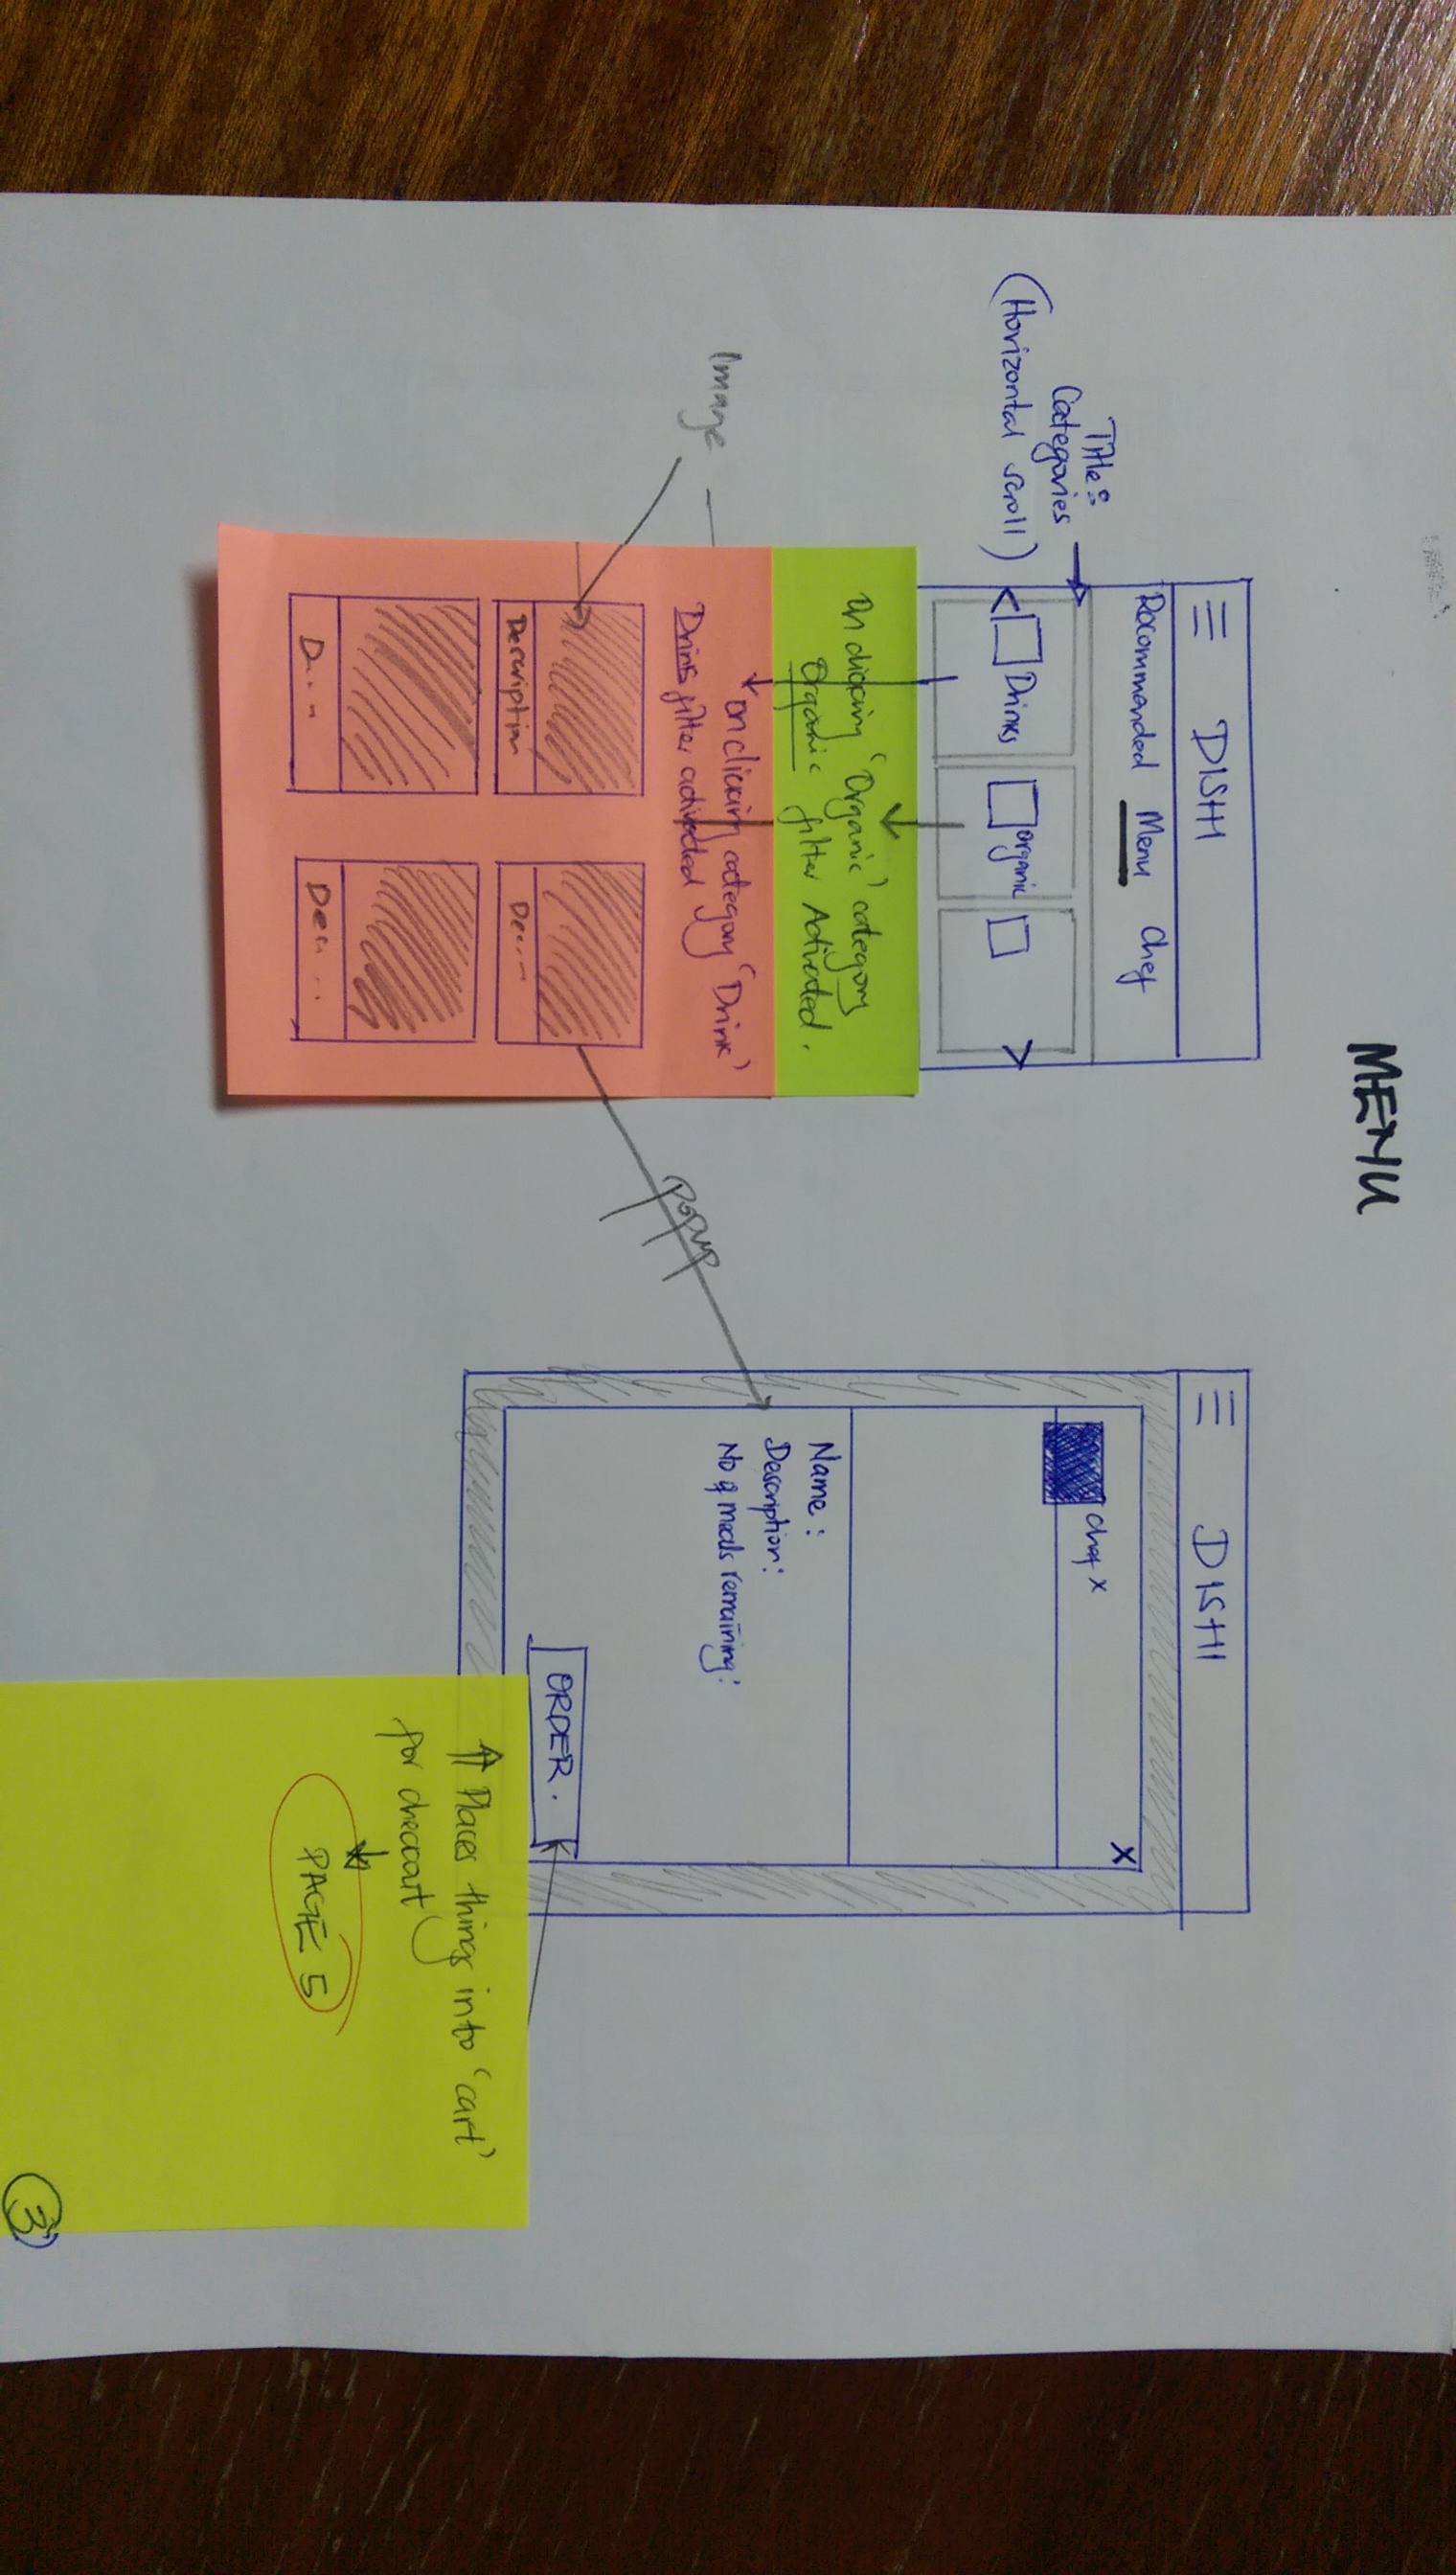 MENU
DISHI
Recommended Menu Chef
Title:
Categories
(Horizontal scroll)
Drinks
organic
On clicking 'Organic' category
Organic filter Activated.
on clicking category 'Drink'
Drinks filter activated
Image
Description
Des....
D....
Des....
popup
DISHI
X
Chef X
Name :
Description:
No of meals remaining:
ORDER.
Places things into 'cart'
for checkout
PAGE 5
3